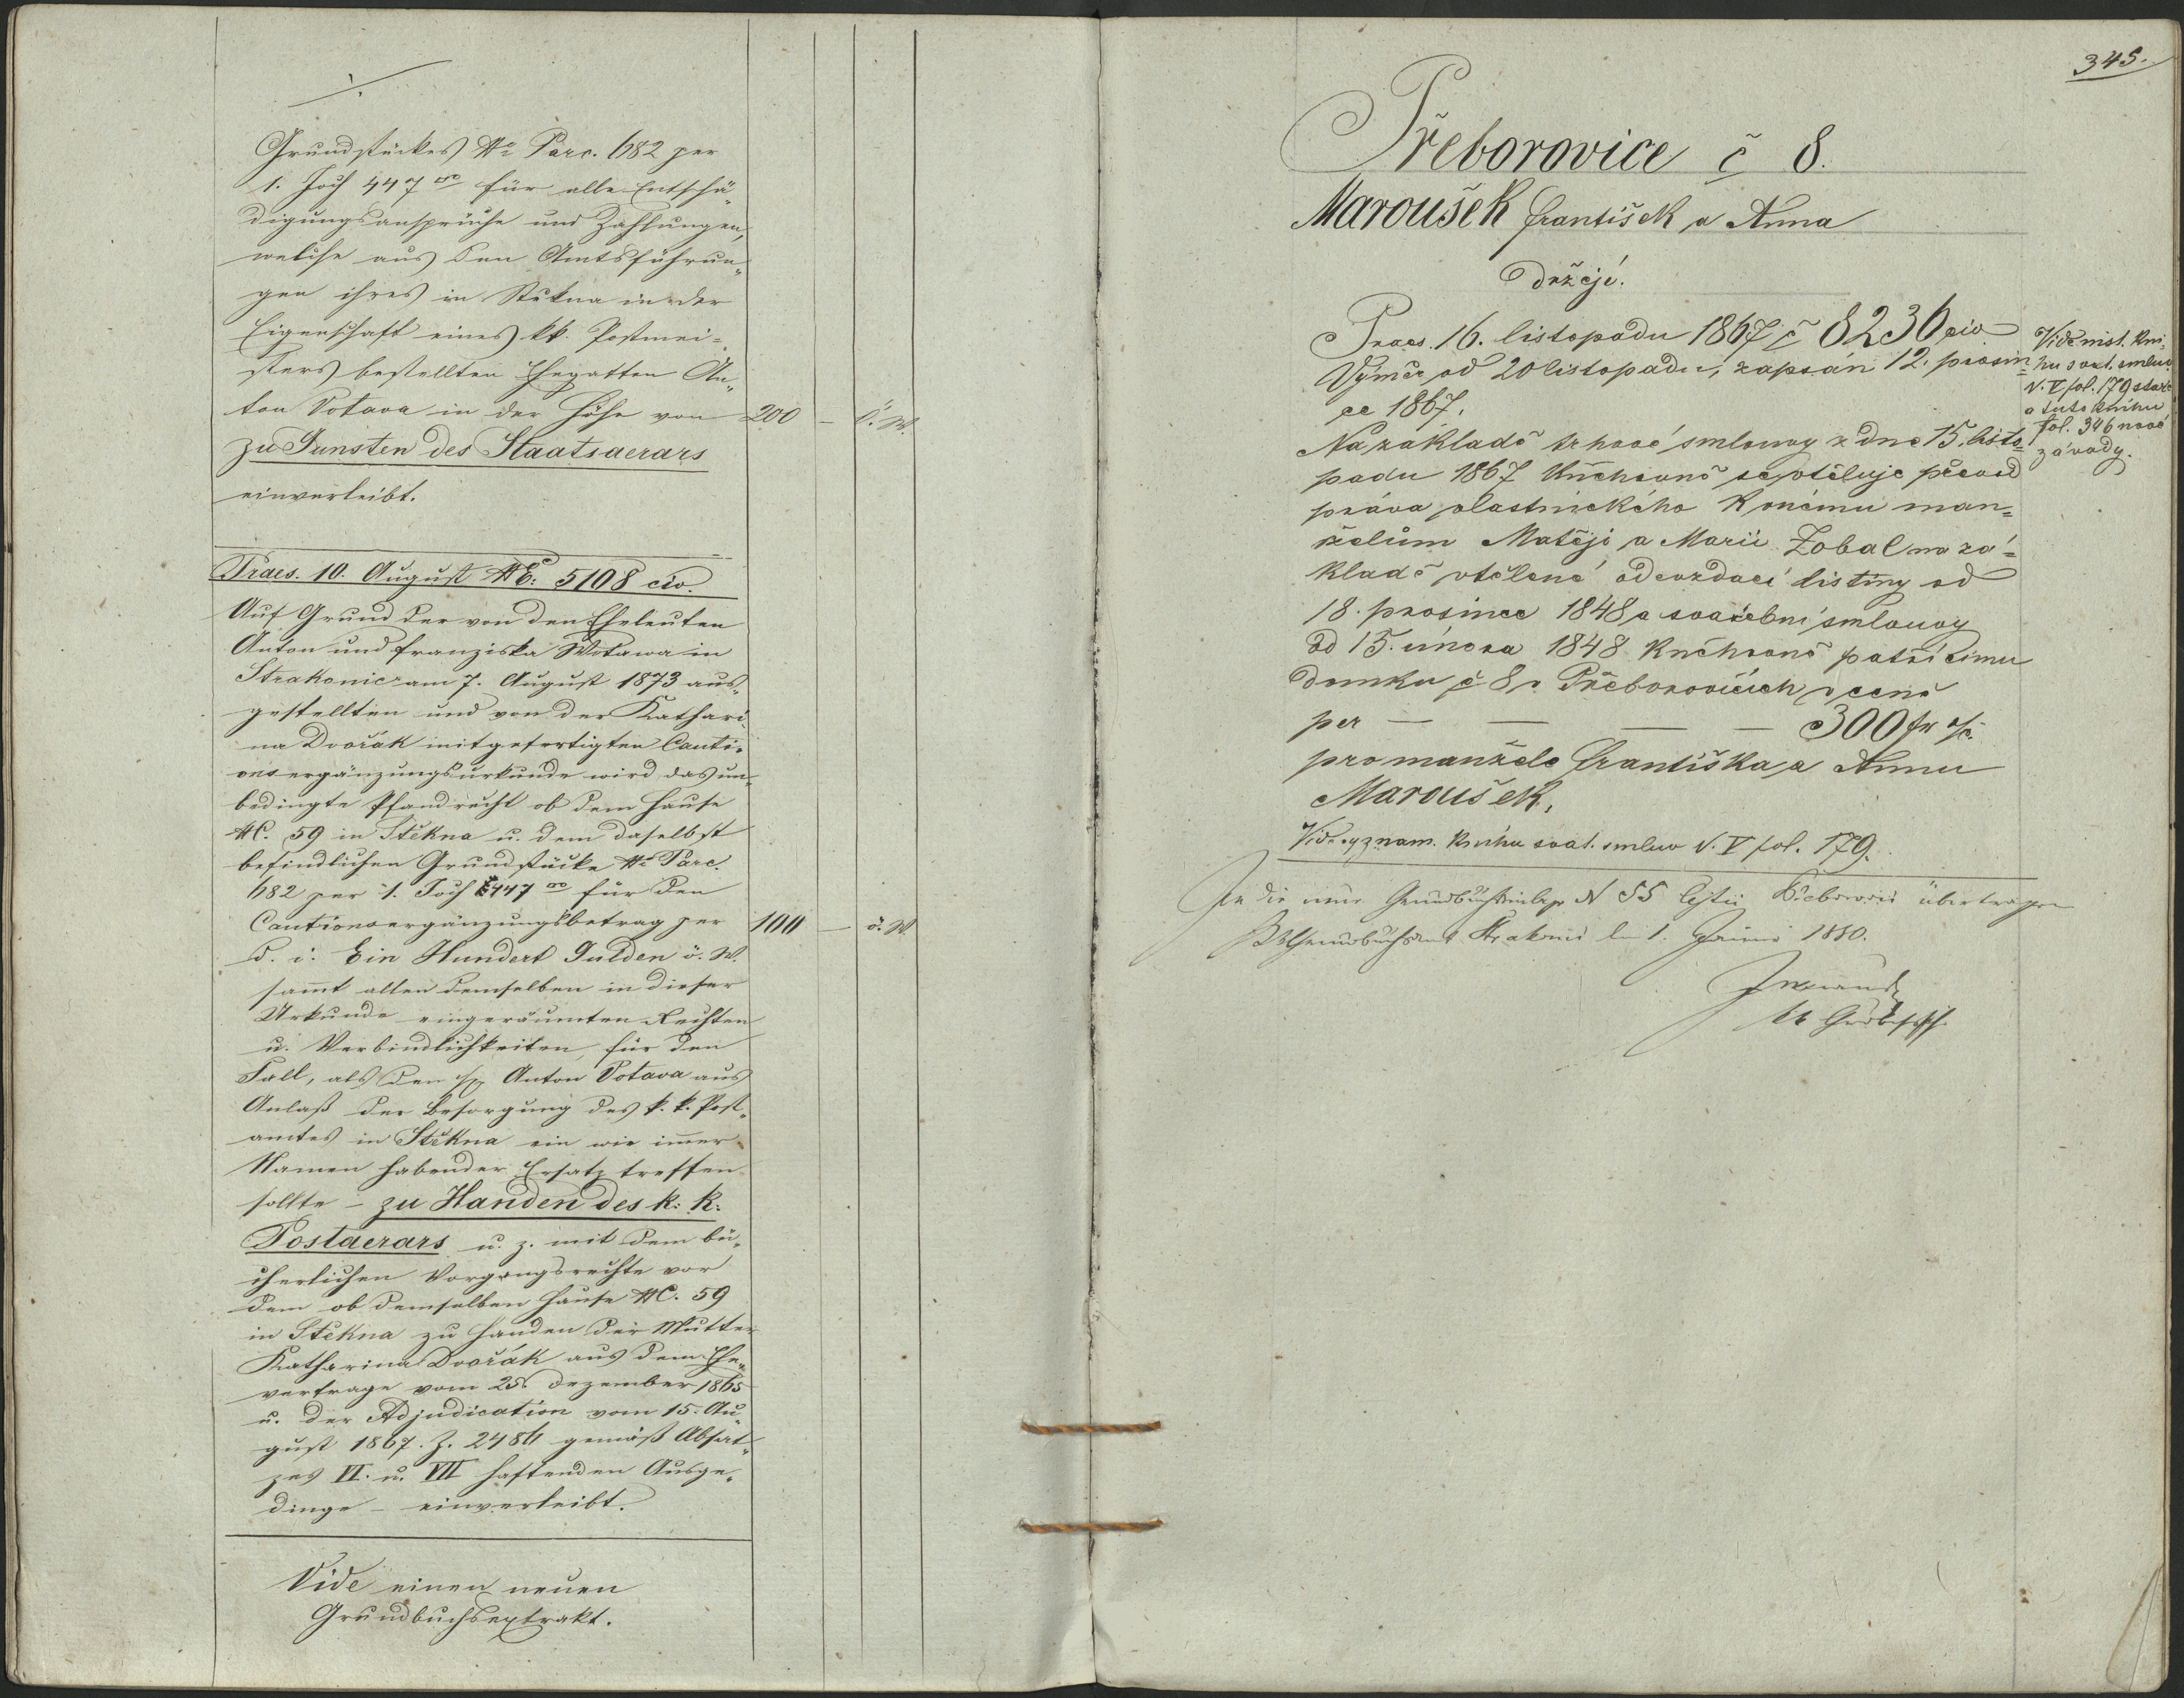 Grundstückes No Parc. 682 per
1. Joch 447 □° für alle Entschä„
digungsansprüche und Zahlungen,
welche aus den Amtsführun„
gen ihres in Stěkna in der
Eigenschaft eines kk. Postmei=
sters bestellten Ehegatten An„
ton Votava in der Höhe von 200 — ö. W.
zu Gunsten des Staatsaerars
einverleibt.
Praes. 10. August NE: 5108 civ.
Auf Grund der von den Eheleuten
Anton und Franziska Wotawa in
Strakonic am 7. August 1873 aus„
gestellten und von der Kathari„
na Dvořák mitgefertigten Cauti„
onsergänzungsurkunde wird das un„
bedingte Pfandrecht ob dem Hause
NC. 59 in Stěkna u. dem daselbst
befindlichen Grundstücke No Parc.
682 per 1. Joch 447 □° für den
Cautionsergänzungsbetrag per 100 — ö. W.
d. i. Ein Hundert Gulden ö. W.
sammt allen demselben in dieser
Urkunde eingeräumten Rechten
u. Verbindlichkeiten, für den
Fall, als den Anton Votava aus
Anlaß der Besorgung des k. k. Post„
amtes in Stěkna ein wie immer
Namen habender Ersatz treffen
sollte – zu Handen des k: k:
Postaerars u. z. mit dem bü„
cherlichen Vorgangsrechte vor
dem ob demselben Hause NC. 59
in Stěkna zu Handen der Mutter
Katharina Dvořák aus dem Ehe„
vertrage vom 25. Dezember 1865
u. der Adjudication vom 15. Au„
gust 1867. Z. 2486 gemäß Absat„
zes VI. u. VII haftenden Ausge„
dinge – einverleibt.
Vide einen neuen
Grundbuchsextrakt.
345.
Přeborovice č 8.
Maroušek František a Anna
Držejí.
Praes. 16. listopadu 1867 č 8236 civ
Výměr od 20 listopadu, zapsán 12. prosin=
ce 1867.
Na základě trhové smlouvy z dne 15. listo=
padu 1867 knihovně se vtěluje převod
práva vlastnického k onému man=
želům Matěji a Marii Zobal na zá=
kladě vtělené odevzdací listiny od
18. prosince 1848 a svatební smlouvy
od 15. února 1848 knihovně patřícímu
domku č 8 v Přeborovicích v ceně
per — — — — 300 fr
pro manžele Františka a Annu
Maroušek.
Vide význam. knihu svat. smluv N. V fol. 179.
Vide míst. kni=
hu svat. smluv
N. V fol. 179 staré
a tuto knihu
fol. 346 nové
závady.
In die neue Grundbuchseinlage N 55 übertragen
Grundbuchsamt Strakonic 1. 1880.